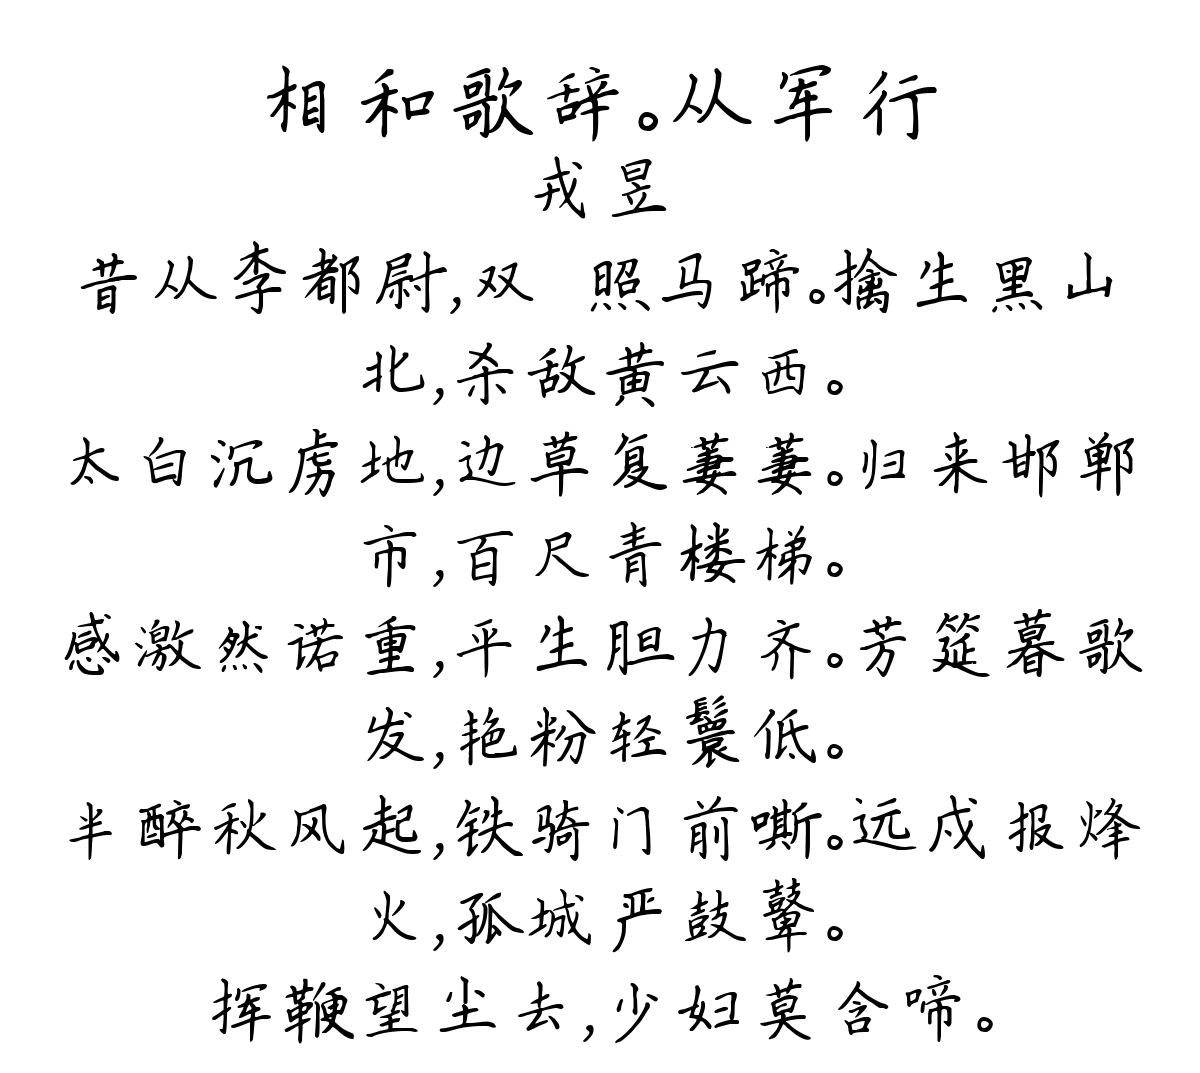 相和歌辞。从军行
戎昱
昔从李都尉,双 照马蹄。擒生黑山
北,杀敌黄云西。
太白沉虏地,边草复萋萋。归来邯郸
市,百尺青楼梯。
感激然诺重,平生胆力齐。芳筵暮歌
发,艳粉轻鬟低。
半醉秋风起,铁骑门前嘶。远戍报烽
火,孤城严鼓鼙。
挥鞭望尘去,少妇莫含啼。